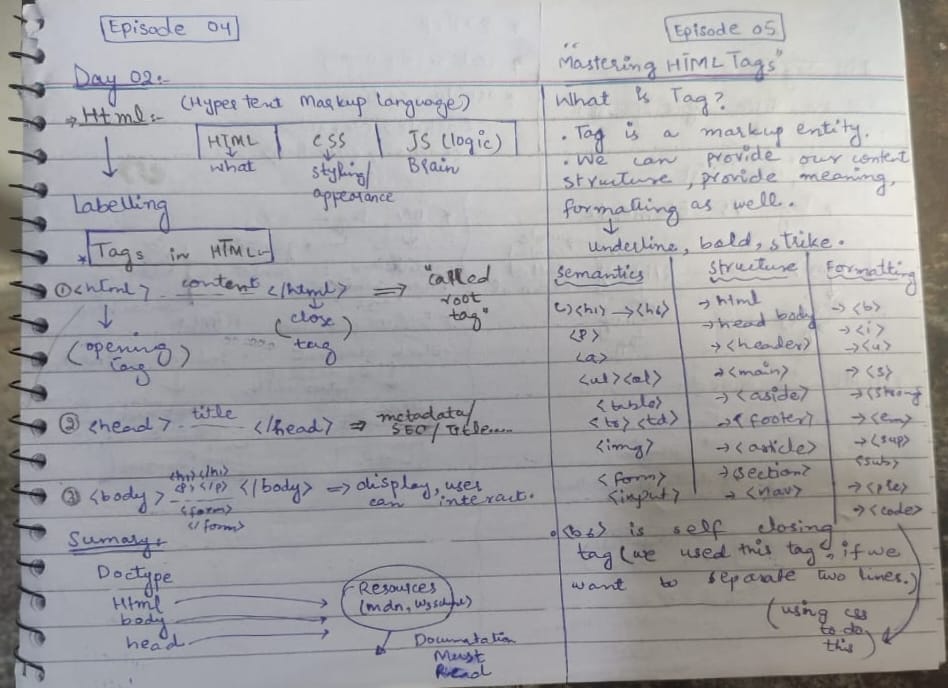 Episode 04
Day 02:-
→ Html:- (Hyper text Markup language)
HTML | CSS | JS (logic)
what styling/ Brain
appearance
Labelling
* Tags in HTML:-
① <html> content </html> ⇒ "called
root
tag"
(opening (close
tag) tag)
② <head> title </head> ⇒ metadata/
SEO/title....
<h1></h1>
③ <body> <p></p> </body> ⇒ display, user
<form> can interact.
</form>
Summary:
Doctype
Html
body
head
Resources
(mdn, w3school)
Documtation
Must
Read
Episode 05
"Mastering HTML Tags"
What is Tag?
. Tag is a markup entity.
. We can provide our content
structure, provide meaning,
formatting as well.
underline, bold, strike.
Semantics | Structure | Formatting
<h1> → <h6>
<p>
<a>
<ul> <ol>
<table>
<tr> <td>
<img>
<form>
<input>
→ html
→ head body
→ <header>
→ <main>
→ <aside>
→ <footer>
→ <article>
→ <section>
→ <nav>
→ <b>
→ <i>
→ <u>
→ <s>
→ <strong
→ <em>
→ <sup>
<sub>
→ <pre>
→ <code>
. <br> is self closing
tag (we used this tag, if we
want to separate two lines.)
(using css
to do
this)